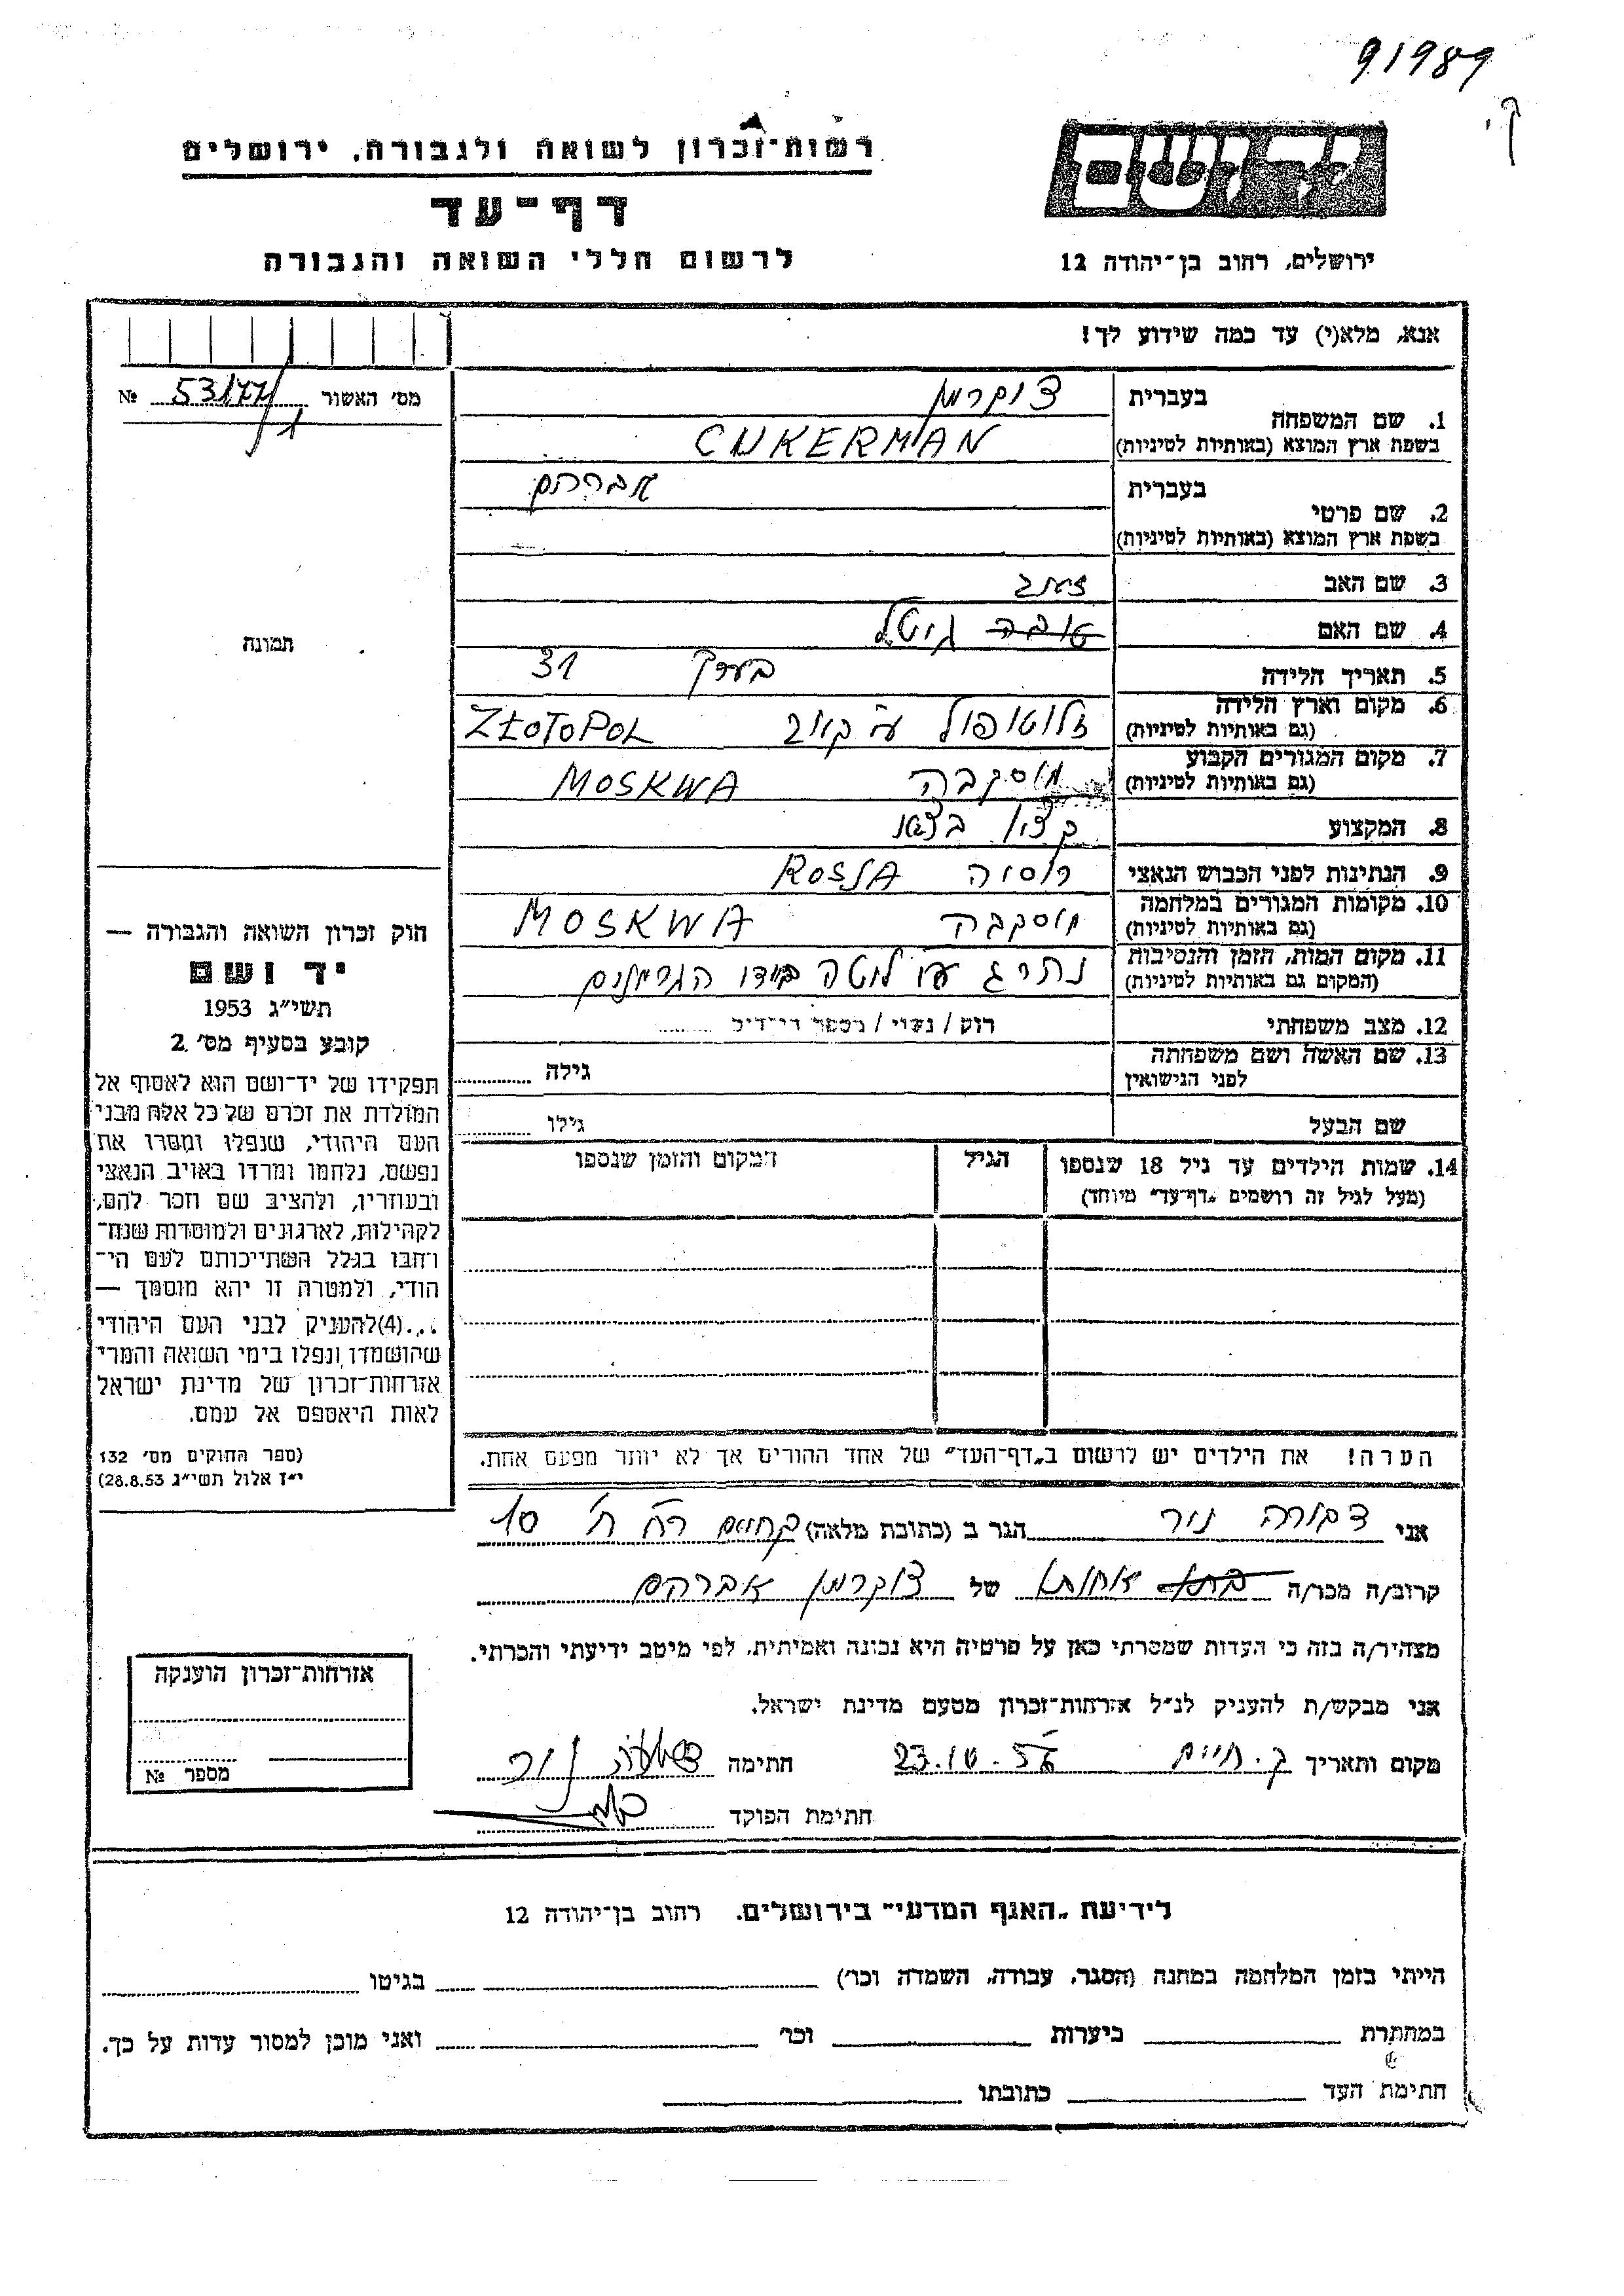 91989
ק.י
רשות-זכרון לשואה ולגבורה, ירושלים
דף-עד
לרשום חללי השואה והגבורה
יד ושם
ירושלים, רחוב בן-יהודה 12
אנא, מלא(י) עד כמה שידוע לך!
מס' האשור 53177 №
תמונה
1. שם המשפחה בעברית צוקרמן
בשפת ארץ המוצא (באותיות לטיניות) CUKERMAN
2. שם פרטי בעברית אברהם
בשפת ארץ המוצא (באותיות לטיניות)
3. שם האב זאב
4. שם האם טובה גיטל
5. תאריך הלידה בערך 31
6. מקום וארץ הלידה (גם באותיות לטיניות) זלוטופול ע"י קיוב ZŁOTOPOL
7. מקום המגורים הקבוע (גם באותיות לטיניות) מוסקבה MOSKWA
8. המקצוע קצין בצבא
9. הנתינות לפני הכבוש הנאצי רוסיה ROSJA
10. מקומות המגורים במלחמה (גם באותיות לטיניות) מוסקבה MOSKWA
11. מקום המות, הזמן והנסיבות (המקום גם באותיות לטיניות) נהרג ע"י בידי הגרמנים
12. מצב משפחתי רוק / נשוי / מספר הילדים
13. שם האשה ושם משפחתה לפני הנישואין גילה
שם הבעל גילו
14. שמות הילדים עד גיל 18 שנספו הגיל המקום והזמן שנספו
(מעל לגיל זה רושמים "דף-עד" מיוחד)
הערה! את הילדים יש לרשום ב"דף-העד" של אחד ההורים אך לא יותר מפעם אחת.
חוק זכרון השואה והגבורה —
יד ושם
תשי"ג 1953
קובע בסעיף מס' 2
תפקידו של יד-ושם הוא לאסוף אל
המולדת את זכרם של כל אלה מבני
העם היהודי, שנפלו ומסרו את
נפשם, נלחמו ומרדו באויב הנאצי
ובעוזריו, ולהציב שם וזכר להם,
לקהילות, לארגונים ולמוסדות שנח-
רחבו בגלל השתייכותם לעם הי-
הודי, ולמטרה זו יהא מוסמך —
...(4) להעניק לבני העם היהודי
שהושמדו ונפלו בימי השואה והמרי
אזרחות-זכרון של מדינת ישראל
לאות היאספם אל עמם.
(ספר החוקים מס' 132
י"ז אלול תשי"ג 28.8.53)
אני דבורה ניר הגר ב (כתובת מלאה) ק חיים רח ח' 10
קרוב/ה מכר/ה אחותו של צוקרמן אברהם
מצהיר/ה בזה כי העדות שמסרתי כאן על פרטיה היא נכונה ואמיתית, לפי מיטב ידיעתי והכרתי.
אני מבקש/ת להעניק לנ"ל אזרחות-זכרון מטעם מדינת ישראל.
מקום ותאריך ק. חיים 23.10.56 חתימה דבורה ניר
חתימת הפוקד
אזרחות-זכרון הוענקה
מספר №
לידיעת "האגף המדעי" בירושלים, רחוב בן-יהודה 12
הייתי בזמן המלחמה במחנה (הסגר, עבודה, השמדה וכר') בגיטו
במחתרת ביערות וכר' ואני מוכן למסור עדות על כך.
חתימת העד כתובתו